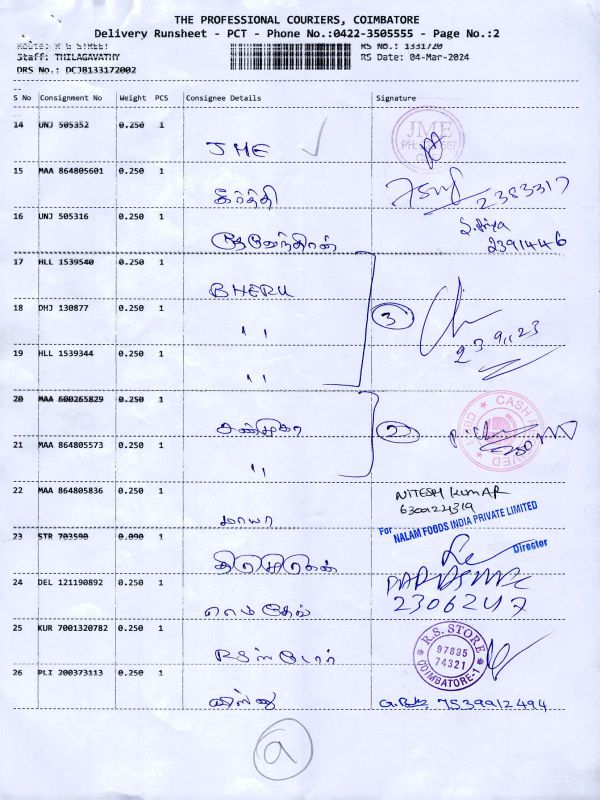 THE PROFESSIONAL COURIERS, COIMBATORE
Delivery Runsheet - PCT - Phone No.:0422-3505555 - Page No.:2
Route: K G STREET
RS No.: 1331720
Staff: THILAGAVATHY
RS Date: 04-Mar-2024
DRS No.: DCJB133172002
S No Consignment No Weight PCS Consignee Details Signature
14 UNJ 505352 0.250 1
JME
JME
15 MAA 864805601 0.250 1
கீர்த்தி
2383317
16 UNJ 505316 0.250 1
2391446
17 HLL 1539540 0.250 1
BHERU
18 DHJ 130877 0.250 1
" 3
23 9,, 23
19 HLL 1539344 0.250 1
"
20 MAA 600265829 0.250 1
சண்முகா 2
21 MAA 864805573 0.250 1
"
22 MAA 864805836 0.250 1
மாயா
NITESH KUMAR
For NALAM FOODS INDIA PRIVATE LIMITED
Director
23 STR 703590 0.090 1
24 DEL 121190892 0.250 1
2306247
25 KUR 7001320782 0.250 1
RS ஸ்டோர்
R.S. STORE
97895
74321
COIMBATORE-1
26 PLI 200373113 0.250 1
விஸ்ணு
7539912494
a